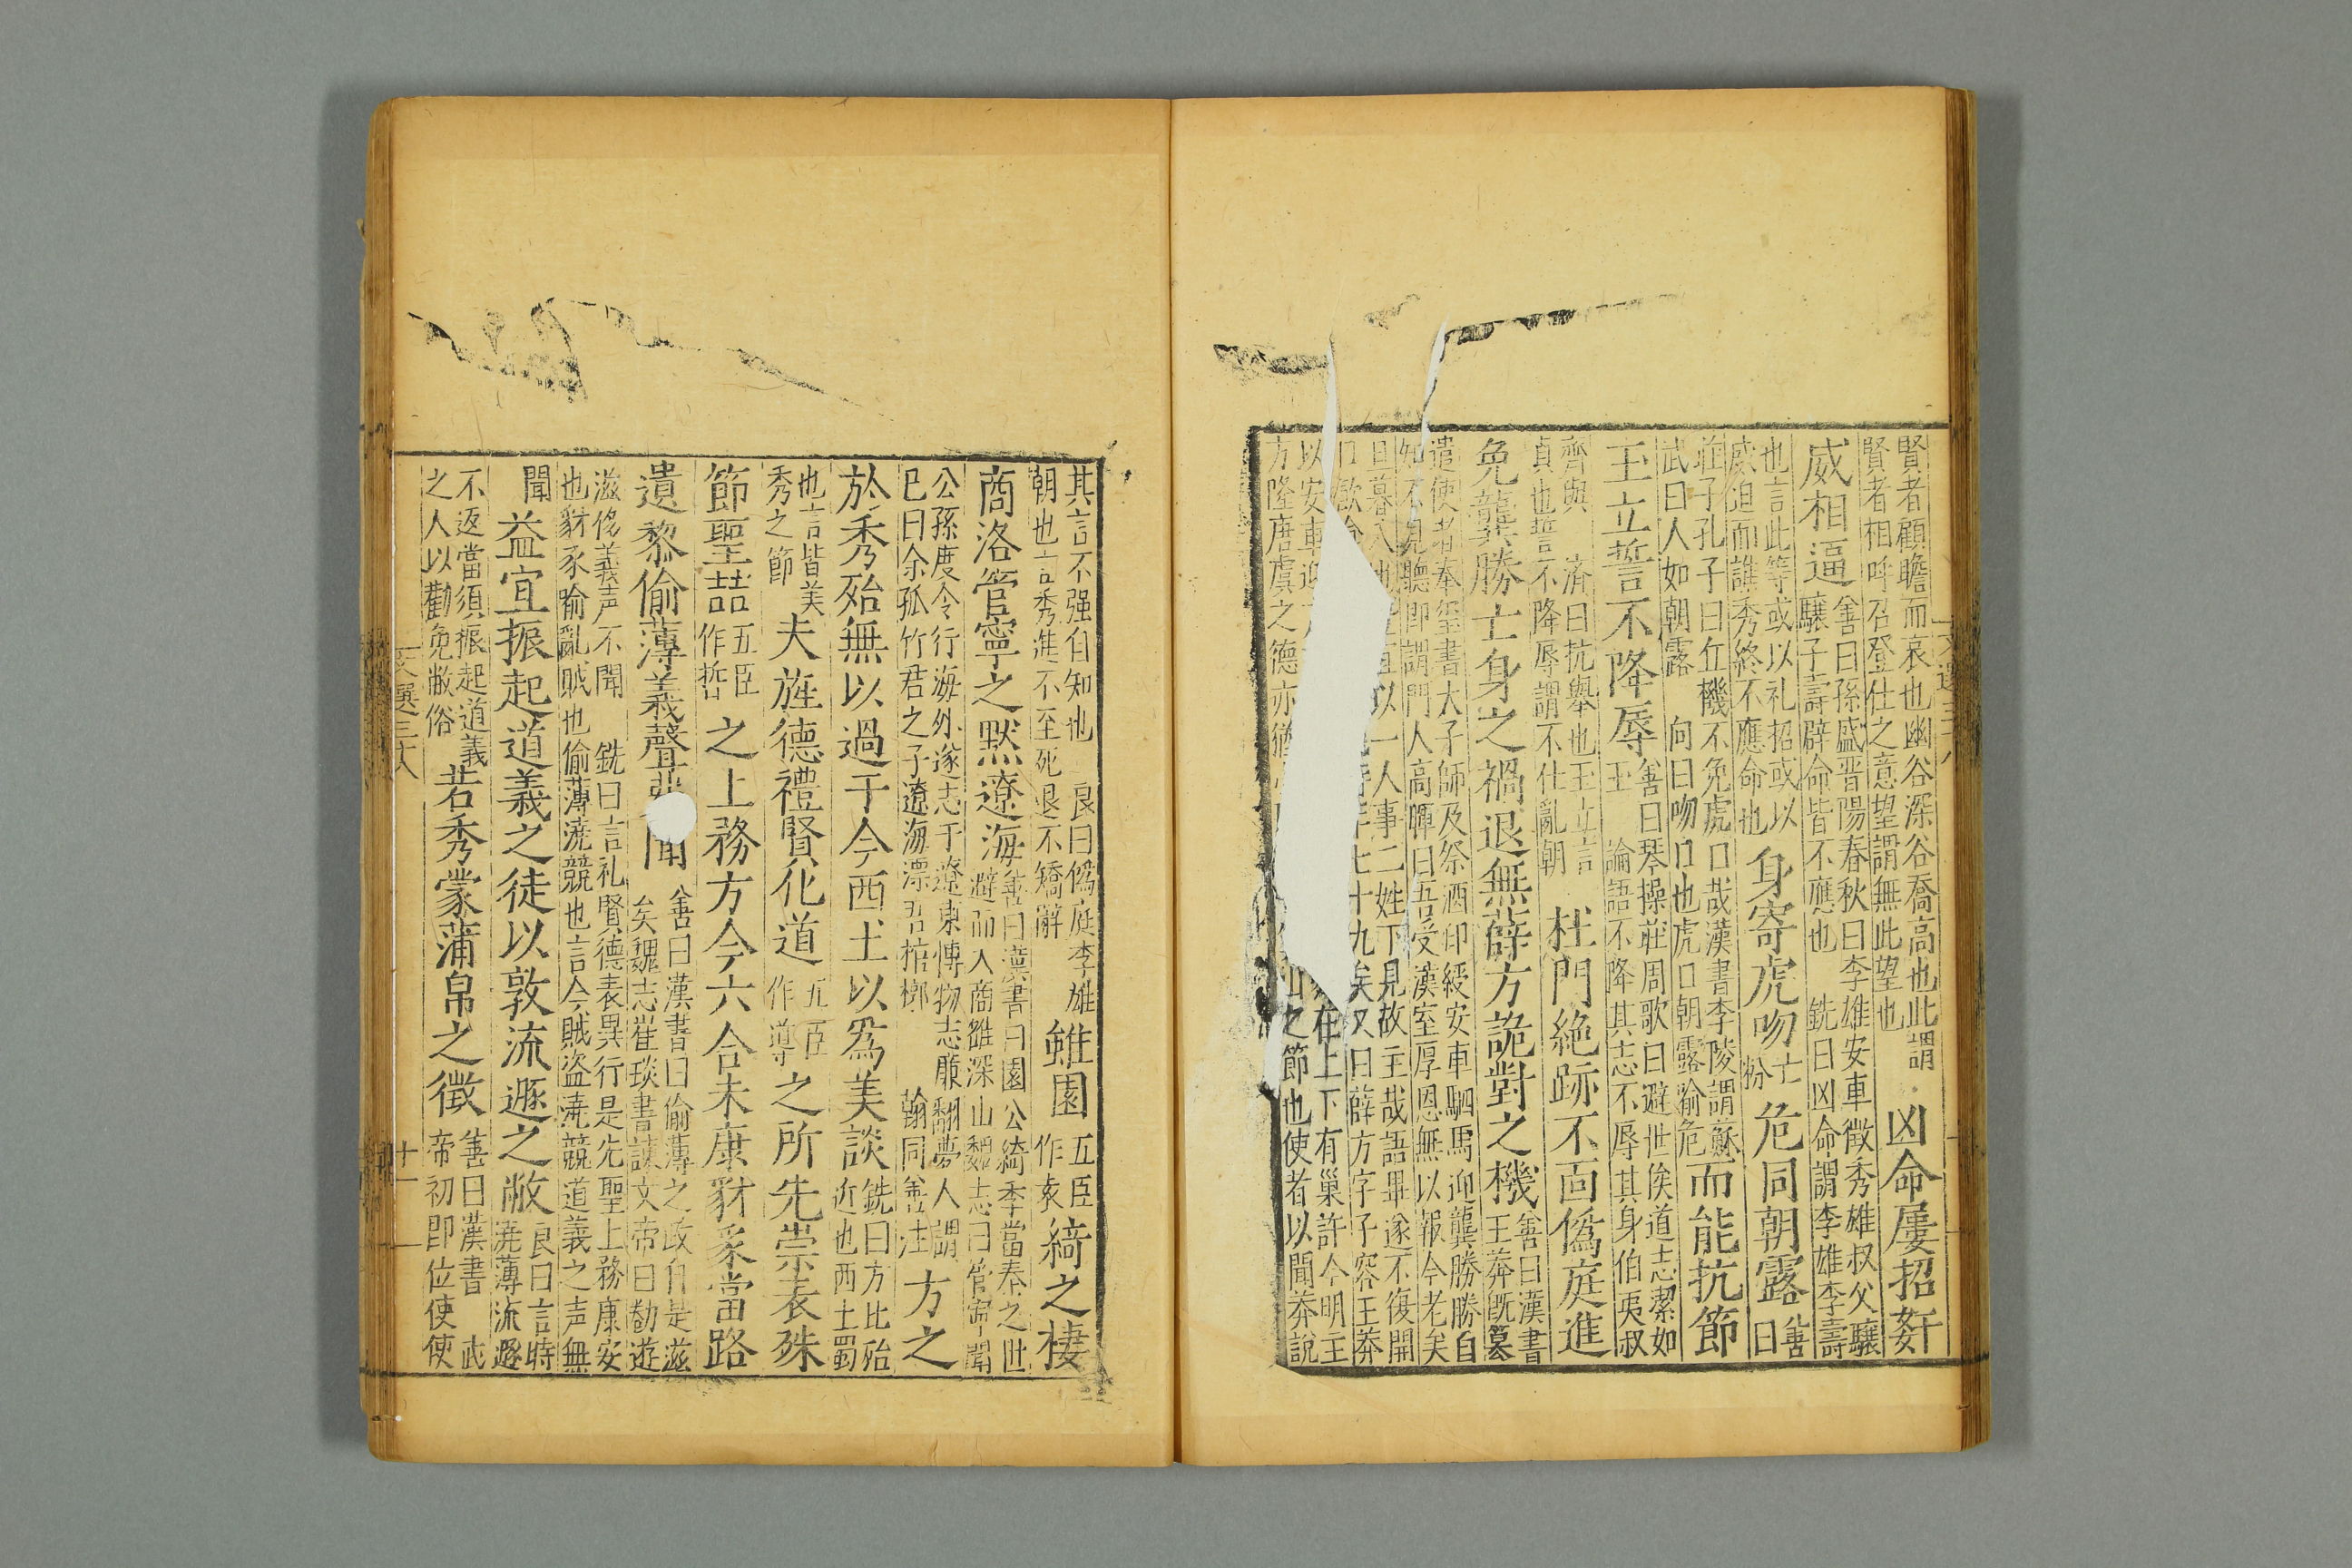 賢者顧瞻而哀也幽谷深谷喬高也此謂
賢者相呼召登仕之意望謂無此望也
凶命屢招姧
威相逼
善曰孫盛晋陽春秋曰李雄安車徵秀雄叔父驤
驤子壽辟命皆不應也 銑曰凶命謂李雄李壽
也言此等或以礼招或以
威迫而誰秀終不應命也
身寄虎吻
亡粉
危同朝露
善曰
莊子孔子曰丘機不免虎口哉漢書李陵謂蘇
武曰人如朝露 向曰吻口也虎口朝露喻危
而能抗節
玉立誓不降辱
善曰琴操莊周歌曰避世俟道志潔如
玉 論語不降其志不辱其身伯夷叔
齊與 濟曰抗舉也玉立言
真也誓不降辱謂不仕亂朝
杜門絶跡不靣僞庭進
免龔勝亡身之禍退無薛方詭對之機
善曰漢書
王莽旣簒
遣使者奉璽書太子師及祭酒印綬安車駟馬迎龔勝勝自
知不見聽即謂門人高暉曰吾受漢室厚恩無以報今老矣
旦暮入地 以一人事二姓下見故主哉語畢遂不復開
口飲 七十九矣又曰薛方字子容王莽
以安車迎 在上下有巢許今明主
方隆唐虞之德亦猶 山之節也使者以聞莽說
其言不强自知也 良曰僞庭李雄
朝也言秀進不至死退不矯辭
雖園
五臣
作亥
綺之棲
商洛管寧之默遼海
善曰漢書曰園公綺季當秦之世
避而入商雒深山魏志曰管寧聞
公孫度令行海外遂志于遼東博物志廉翻夢人謂
已曰余孤竹君之子遼海漂吾棺槨 翰同善注
方之
於秀殆無以過于今西土以爲美談
銑曰方比殆
近也西土蜀
也言皆美
秀之節
夫旌德禮賢化道
五臣
作導
之所先崇表殊
節聖喆
五臣
作哲
之上務方今六合未康豺豕當路
遺黎偷薄義聲 聞
善曰漢書曰偷薄之政自是滋
矣魏志崔琰書諫文帝曰勸遊
滋侈義声不聞 銑曰言礼賢德表異行是先聖上務康安
也豺豕喻亂賊也偷薄澆競也言今賊盗澆競道義之声無
聞
益宜振起道義之徒以敦流遯之敝
良曰言時
澆薄流遯
不返當須振起道義
之人以勸免敝俗
若秀蒙蒲帛之徵
善曰漢書 武
帝初即位使使
文選三十八
十一